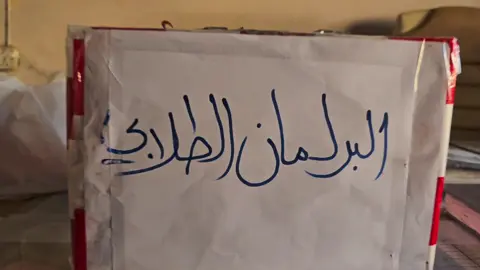 البرلمان الطلابي